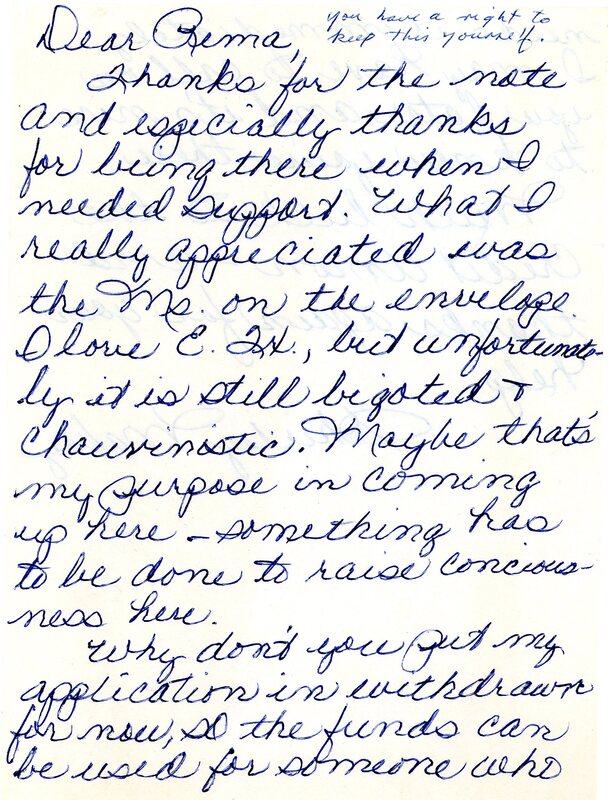 you have a right to
keep this yourself.
Dear Rema,
Thanks for the note
and especially thanks
for being there when I
needed support. What I
really appreciated was
the Ms. on the envelope.
I love E. Tx., but unfortunate-
ly it is still bigoted &
chauvinistic. Maybe that's
my purpose in coming
up here - something has
to be done to raise concious-
ness here.
Why don't you put my
application in withdrawn
for now, so the funds can
be used for someone who